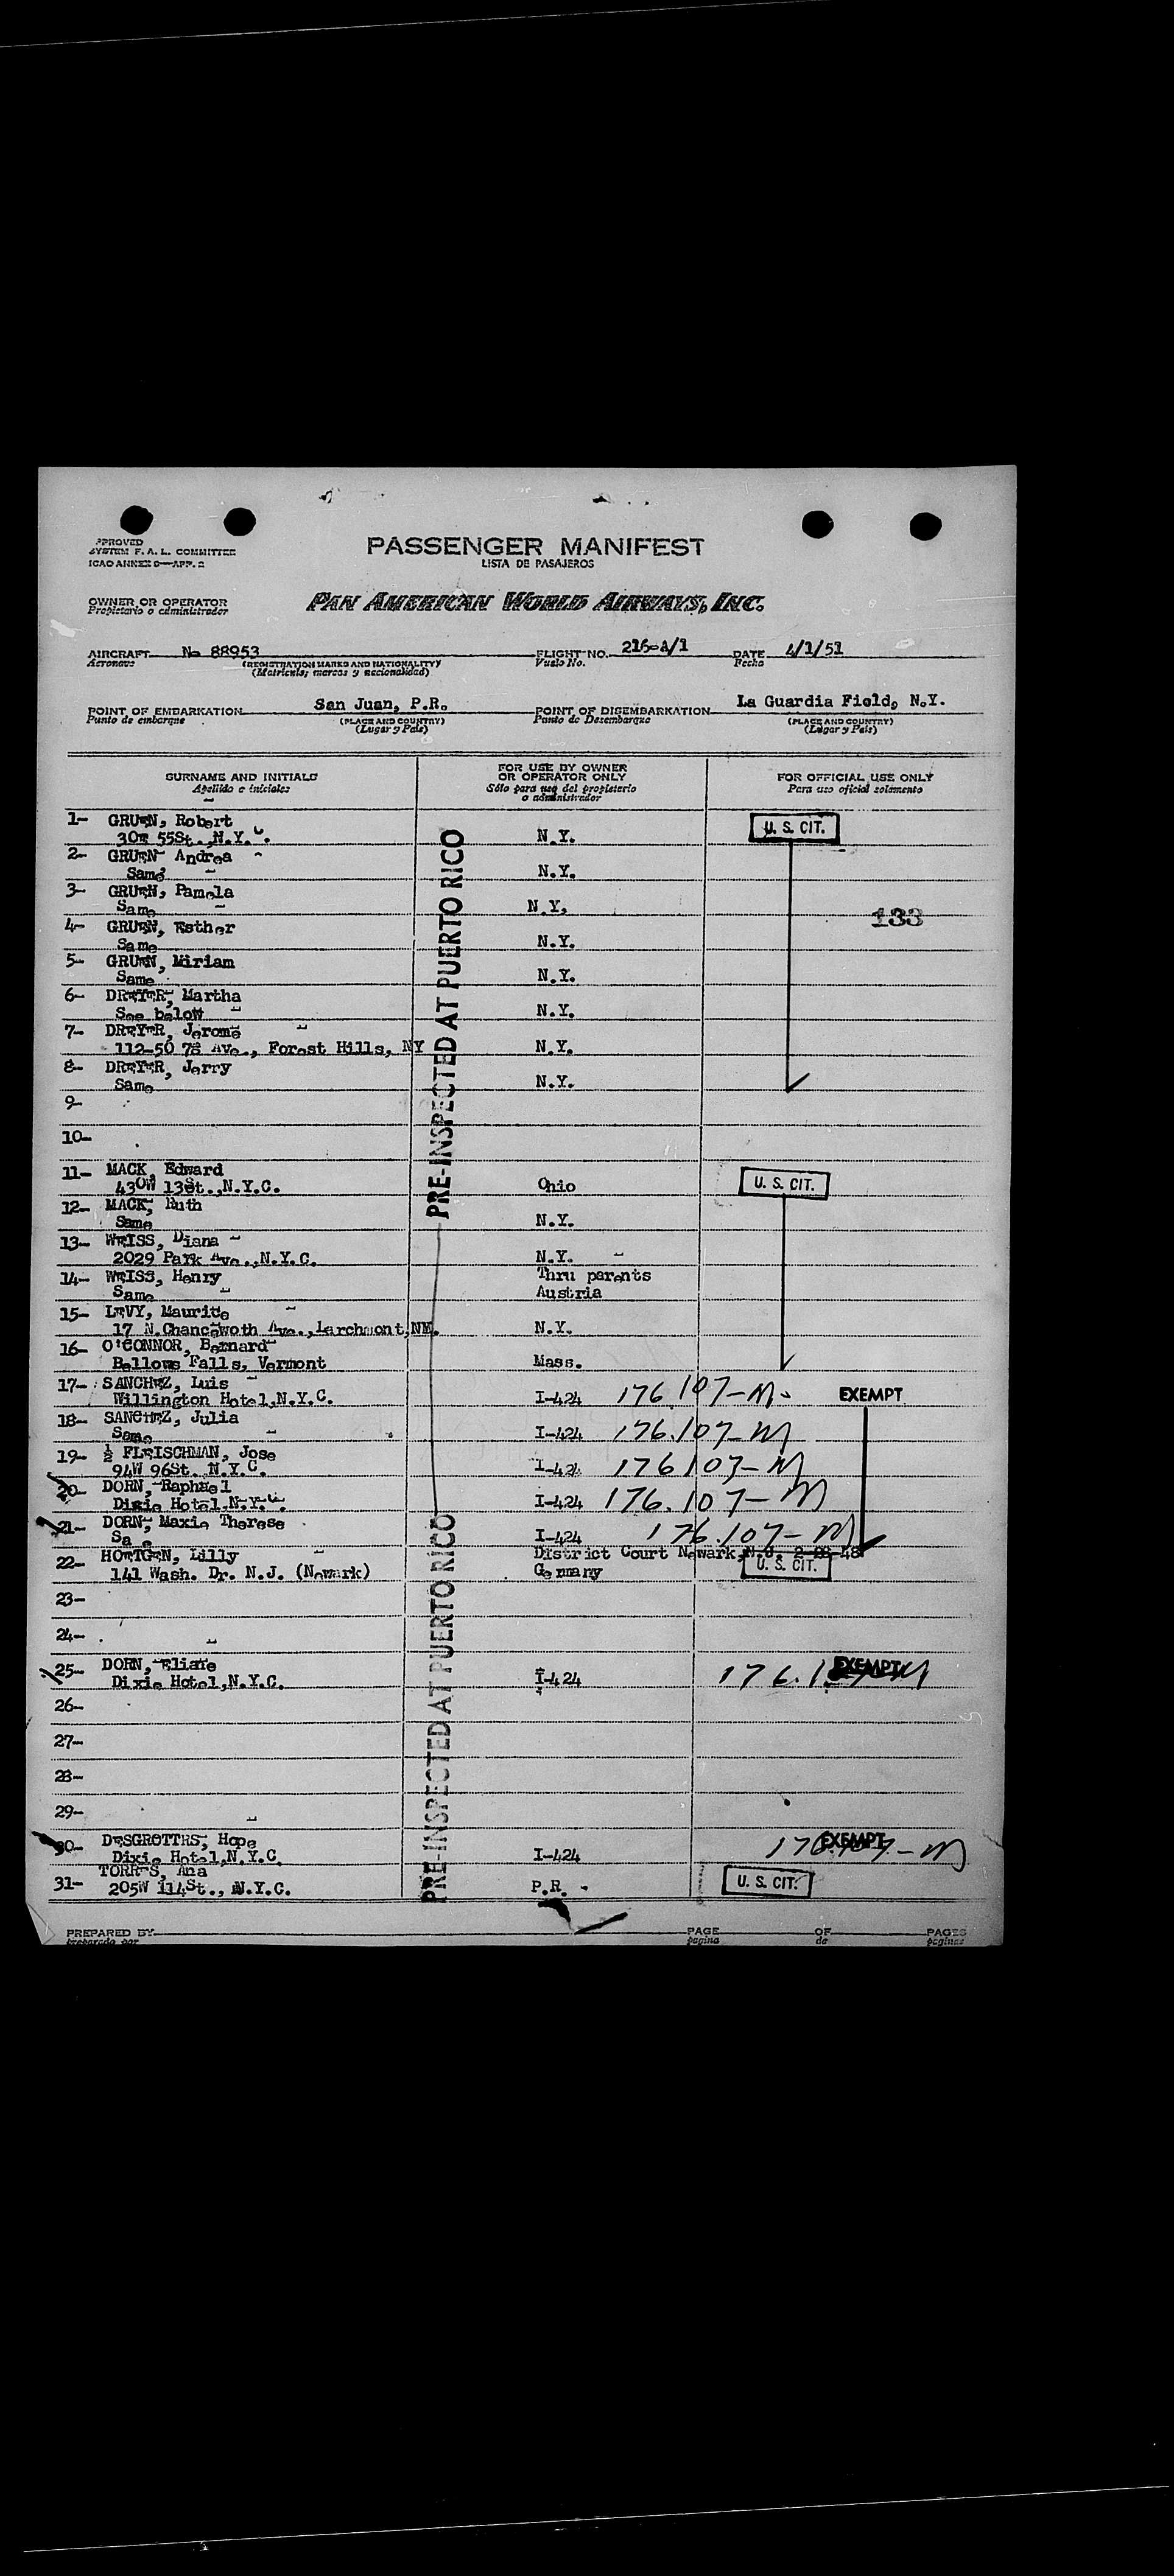 APPROVED
SYSTEM F. A. L. COMMITTEE
ICAO ANNEX 9—APP. 2
PASSENGER MANIFEST
LISTA DE PASAJEROS
OWNER OR OPERATOR
Propietario o administrador
PAN AMERICAN WORLD AIRWAYS, INC.
AIRCRAFT No 88953 FLIGHT NO. 216-A/1 DATE 4/1/51
Aeronave (REGISTRATION MARKS AND NATIONALITY) Vuelo No. Fecha
(Matricula; marcas y nacionalidad)
POINT OF EMBARKATION San Juan, P.R. POINT OF DISEMBARKATION La Guardia Field, N.Y.
Punto de embarque (PLACE AND COUNTRY) Punto de Desembarque (PLACE AND COUNTRY)
(Lugar y Pais) (Lugar y Pais)
SURNAME AND INITIALS FOR USE BY OWNER OR OPERATOR ONLY FOR OFFICIAL USE ONLY
Apellido e iniciales Sólo para uso del propietario o administrador Para uso oficial solamente
PRE-INSPECTED AT PUERTO RICO
1- GRUEN, Robert U. S. CIT.
30E 55St., N.Y.C. N.Y.
2- GRUEN Andrea
Same N.Y.
3- GRUEN, Pamela
Same N.Y. 133
4- GRUEN, Esther
Same N.Y.
5- GRUEN, Miriam
Same N.Y.
6- DREYER, Martha
See below N.Y.
7- DREYER, Jerome
112-50 78 Ave., Forest Hills, NY N.Y.
8- DREYER, Jerry
Same N.Y.
9-
10-
11- MACK, Edward
430W 13St., N.Y.C. Ohio U. S. CIT.
12- MACK, Ruth
Same N.Y.
13- WEISS, Diana
2029 Park Ave., N.Y.C. N.Y.
14- WEISS, Henry Thru parents
Same Austria
15- LEVY, Maurice
17 N. Ave., Larchmont, NY. N.Y.
16- O'CONNOR, Bernard
Bellows Falls, Vermont Mass.
17- SANCHEZ, Luis
Willington Hotel, N.Y.C. I-424 176.107-M EXEMPT
18- SANCHEZ, Julia
Same I-424 176.107-M
19- ½ FLEISCHMAN, Jose
94W 96St. N.Y.C. I-424 176107-M
20- DORN, Raphael
Dixie Hotel, N.Y.C. I-424 176.107-M
21- DORN, Maxie Therese
Sa e I-424 176.107-M
22- Lilly District Court Newark, N.J.
141 Wash. Dr. N.J. (Newark) Germany U. S. CIT.
23-
24-
25- DORN, Eliane
Dixie Hotel, N.Y.C. I-424 EXEMPT
26-
27-
28-
29-
30- DESGROTTES, Hope
Dixie Hotel, N.Y.C. I-424 EXEMPT
TORRES, Ana
31- 205W 114St., N.Y.C. P.R. U. S. CIT.
PRE-INSPECTED AT PUERTO RICO
PREPARED BY PAGE OF PAGES
preparado por pagina de paginas